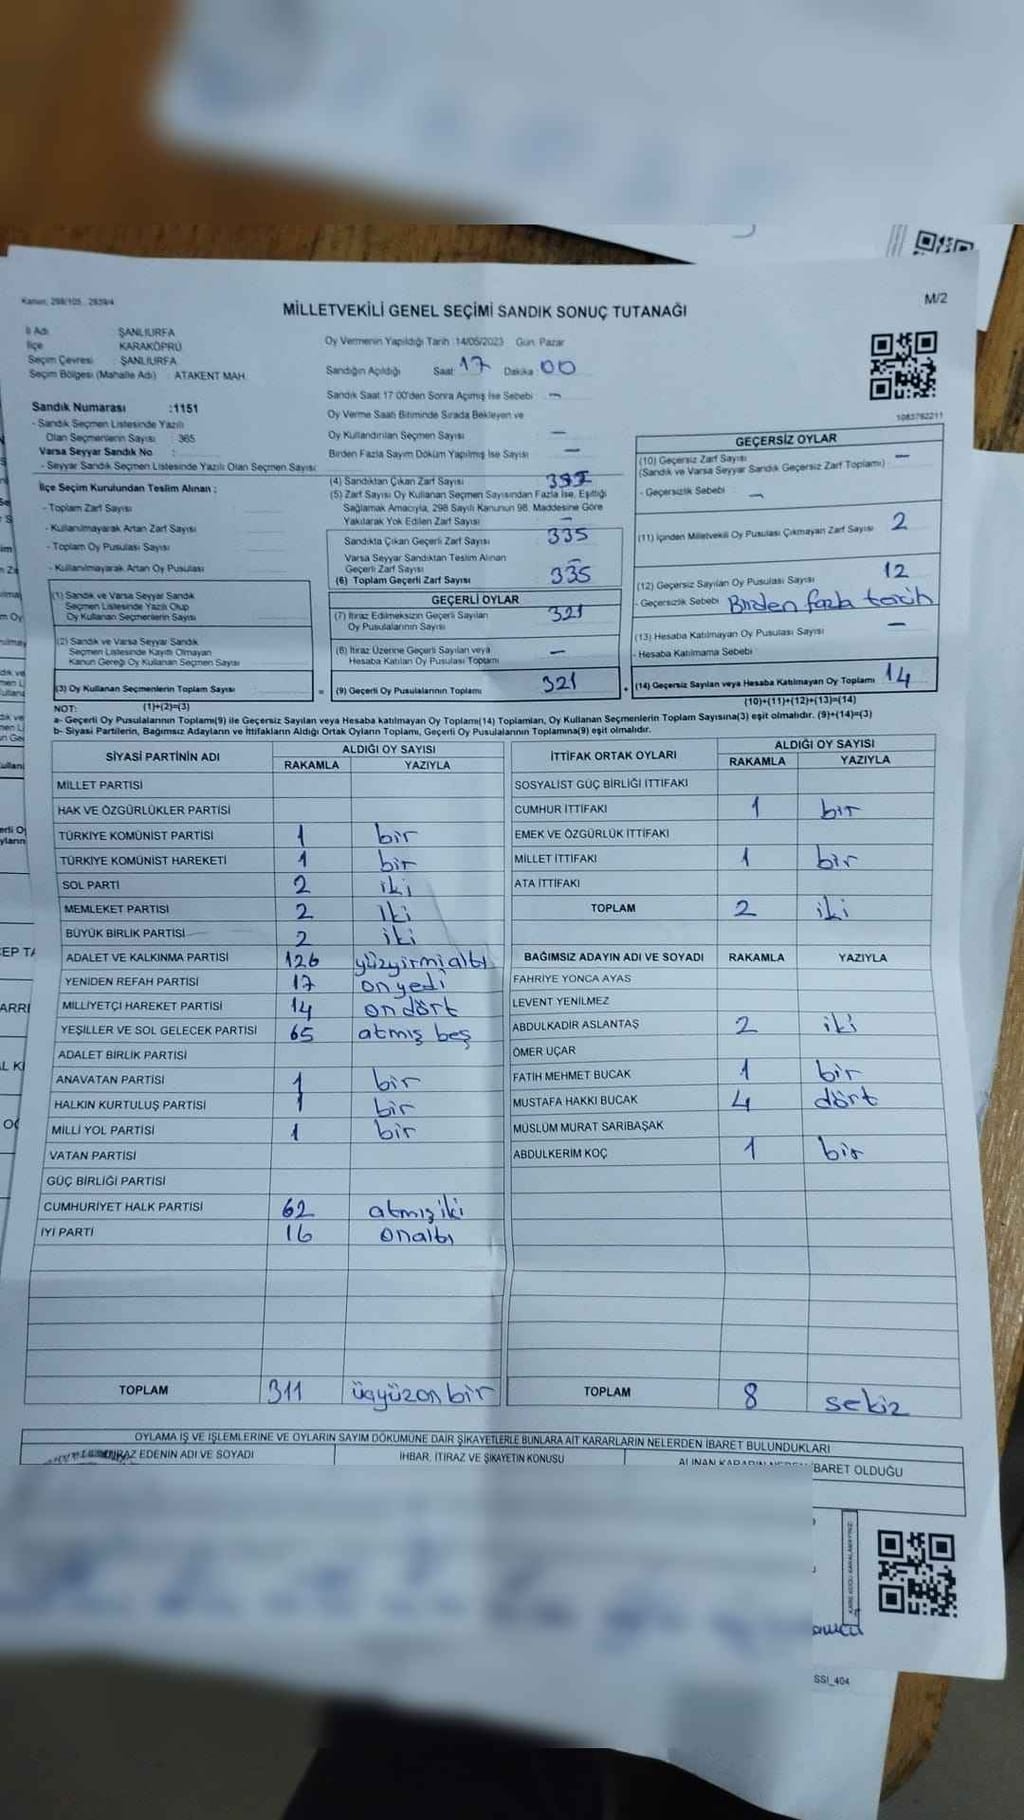 Kanun: 298/105 2839/4
M/2
MİLLETVEKİLİ GENEL SEÇİMİ SANDIK SONUÇ TUTANAĞI
İl Adı ŞANLIURFA
İlçe KARAKÖPRÜ
Seçim Çevresi ŞANLIURFA
Seçim Bölgesi (Mahalle Adı) : ATAKENT MAH.
Sandık Numarası :1151
- Sandık Seçmen Listesinde Yazılı
Olan Seçmenlerin Sayısı : 365
Varsa Seyyar Sandık No :
- Seyyar Sandık Seçmen Listesinde Yazılı Olan Seçmen Sayısı:
İlçe Seçim Kurulundan Teslim Alınan :
- Toplam Zarf Sayısı
- Kullanılmayarak Artan Zarf Sayısı
- Toplam Oy Pusulası Sayısı
- Kullanılmayarak Artan Oy Pusulası
(1) Sandık ve Varsa Seyyar Sandık
Seçmen Listesinde Yazılı Olup
Oy Kullanan Seçmenlerin Sayısı
(2) Sandık ve Varsa Seyyar Sandık
Seçmen Listesinde Kayıtlı Olmayan
Kanun Gereği Oy Kullanan Seçmen Sayısı
(3) Oy Kullanan Seçmenlerin Toplam Sayısı
Oy Vermenin Yapıldığı Tarih :14/05/2023 Gün: Pazar
Sandığın Açıldığı Saat: 17 Dakika: 00
Sandık Saat 17 00'den Sonra Açımış İse Sebebi —
Oy Verme Saati Bitiminde Sırada Bekleyen ve
Oy Kullandırılan Seçmen Sayısı —
Birden Fazla Sayım Döküm Yapılmış İse Sayısı —
(4) Sandıktan Çıkan Zarf Sayısı
(5) Zarf Sayısı Oy Kullanan Seçmen Sayısından Fazla İse, Eşitliği
Sağlamak Amacıyla, 298 Sayılı Kanunun 98. Maddesine Göre
Yakılarak Yok Edilen Zarf Sayısı —
Sandıkta Çıkan Geçerli Zarf Sayısı 335
Varsa Seyyar Sandıktan Teslim Alınan
Geçerli Zarf Sayısı —
(6) Toplam Geçerli Zarf Sayısı 335
GEÇERLİ OYLAR
(7) İtiraz Edilmeksizin Geçerli Sayılan
Oy Pusulalarının Sayısı 321
(8) İtiraz Üzerine Geçerli Sayılan veya
Hesaba Katılan Oy Pusulası Toplamı —
= (9) Geçerli Oy Pusulalarının Toplamı 321
1083782211
GEÇERSİZ OYLAR
(10) Geçersiz Zarf Sayısı —
(Sandık ve Varsa Seyyar Sandık Geçersiz Zarf Toplamı)
- Geçersizlik Sebebi —
(11) İçinden Milletvekili Oy Pusulası Çıkmayan Zarf Sayısı 2
(12) Geçersiz Sayılan Oy Pusulası Sayısı 12
- Geçersizlik Sebebi Birden fazla tercih
(13) Hesaba Katılmayan Oy Pusulası Sayısı —
- Hesaba Katılmama Sebebi
(14) Geçersiz Sayılan veya Hesaba Katılmayan Oy Toplamı 14
NOT: (1)+(2)=(3)
(10)+(11)+(12)+(13)=(14)
a- Geçerli Oy Pusulalarının Toplamı(9) ile Geçersiz Sayılan veya Hesaba katılmayan Oy Toplamı(14) Toplamları, Oy Kullanan Seçmenlerin Toplam Sayısına(3) eşit olmalıdır. (9)+(14)=(3)
b- Siyasi Partilerin, Bağımsız Adayların ve İttifakların Aldığı Ortak Oyların Toplamı, Geçerli Oy Pusulalarının Toplamına(9) eşit olmalıdır.
SİYASİ PARTİNİN ADI ALDIĞI OY SAYISI
RAKAMLA YAZIYLA
MİLLET PARTİSİ
HAK VE ÖZGÜRLÜKLER PARTİSİ
TÜRKİYE KOMÜNİST PARTİSİ 1 bir
TÜRKİYE KOMÜNİST HAREKETİ 1 bir
SOL PARTİ 2 iki
MEMLEKET PARTİSİ 2 iki
BÜYÜK BİRLİK PARTİSİ 2 iki
ADALET VE KALKINMA PARTİSİ 126 yüzyirmialtı
YENİDEN REFAH PARTİSİ 17 onyedi
MİLLİYETÇİ HAREKET PARTİSİ 14 ondört
YEŞİLLER VE SOL GELECEK PARTİSİ 65 atmış beş
ADALET BİRLİK PARTİSİ
ANAVATAN PARTİSİ 1 bir
HALKIN KURTULUŞ PARTİSİ 1 bir
MİLLİ YOL PARTİSİ 1 bir
VATAN PARTİSİ
GÜÇ BİRLİĞİ PARTİSİ
CUMHURİYET HALK PARTİSİ 62 atmışiki
İYİ PARTİ 16 onaltı
TOPLAM 311 üçyüzonbir
İTTİFAK ORTAK OYLARI ALDIĞI OY SAYISI
RAKAMLA YAZIYLA
SOSYALİST GÜÇ BİRLİĞİ İTTİFAKI
CUMHUR İTTİFAKI 1 bir
EMEK VE ÖZGÜRLÜK İTTİFAKI
MİLLET İTTİFAKI 1 bir
ATA İTTİFAKI
TOPLAM 2 iki
BAĞIMSIZ ADAYIN ADI VE SOYADI RAKAMLA YAZIYLA
FAHRİYE YONCA AYAS
LEVENT YENİLMEZ
ABDULKADİR ASLANTAŞ 2 iki
ÖMER UÇAR
FATİH MEHMET BUCAK 1 bir
MUSTAFA HAKKI BUCAK 4 dört
MÜSLÜM MURAT SARIBAŞAK
ABDULKERİM KOÇ 1 bir
TOPLAM 8 sekiz
OYLAMA İŞ VE İŞLEMLERİNE VE OYLARIN SAYIM DÖKÜMÜNE DAİR ŞİKAYETLERLE BUNLARA AİT KARARLARIN NELERDEN İBARET BULUNDUKLARI
EDENİN ADI VE SOYADI İHBAR, İTİRAZ VE ŞİKAYETİN KONUSU ALINAN KARARIN NEDEN İBARET OLDUĞU
SSI_404